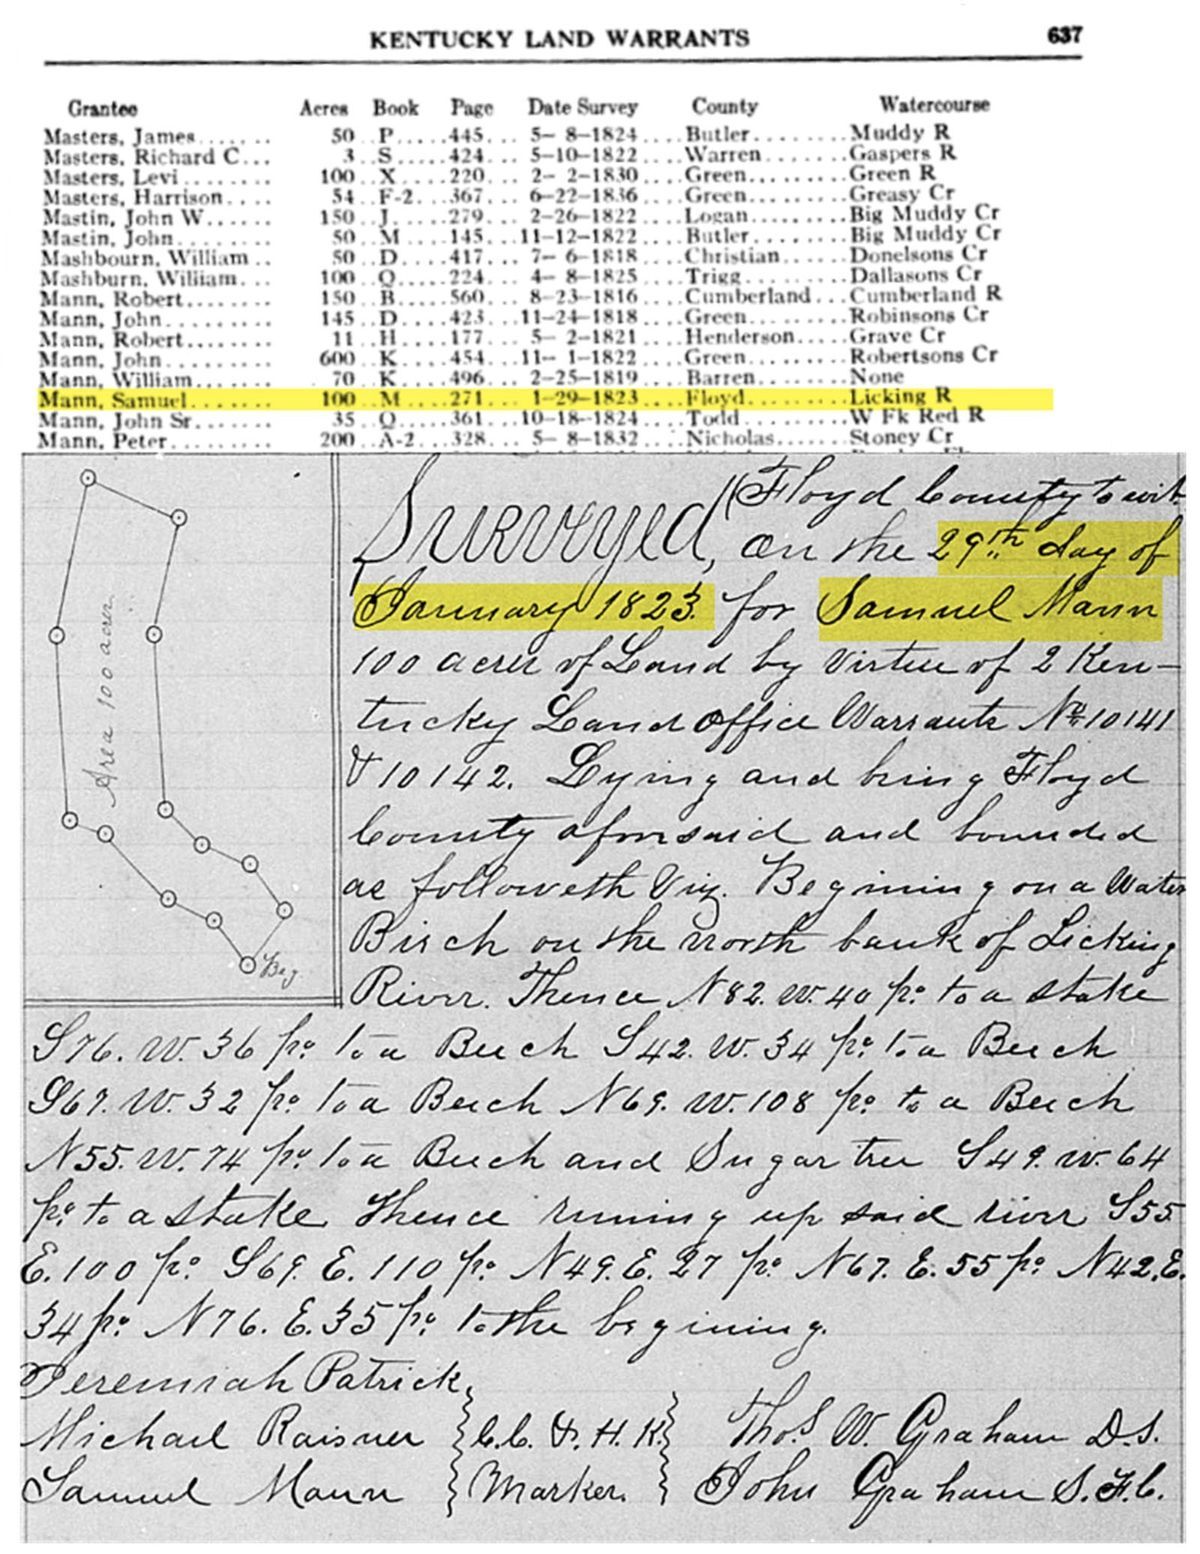 KENTUCKY LAND WARRANTS 637
Grantee Acres Book Page Date Survey County Watercourse
Masters, James....... 50 ..P.....445... 5- 8-1824....Butler........Muddy R
Masters, Richard C... 3 ..S.....424... 5-10-1822....Warren.......Gaspers R
Masters, Levi........ 100 ..X.....220... 2- 2-1830....Green........Green R
Masters, Harrison.... 54 ..F-2...367... 6-22-1836....Green........Greasy Cr
Mastin, John W....... 150 ..J.....279... 2-26-1822....Logan........Big Muddy Cr
Mastin, John......... 50 ..M.....145...11-12-1822....Butler........Big Muddy Cr
Mashbourn, William .. 50 ..D.....417... 7- 6-1818....Christian.....Donelsons Cr
Mashburn, William... 100 ..Q.....224... 4- 8-1825....Trigg.........Dallasons Cr
Mann, Robert........ 150 ..B.....560... 8-23-1816....Cumberland...Cumberland R
Mann, John.......... 145 ..D.....423...11-24-1818....Green.........Robinsons Cr
Mann, Robert........ 11 ..H.....177... 5- 2-1821....Henderson.....Grave Cr
Mann, John.......... 600 ..K.....454...11- 1-1822....Green.........Robertsons Cr
Mann, William....... 70 ..K.....496... 2-25-1819....Barren........None
Mann, Samuel........ 100 ..M.....271... 1-29-1823....Floyd.........Licking R
Mann, John Sr....... 35 ..Q.....361...10-18-1824....Todd..........W Fk Red R
Mann, Peter......... 200 ..A-2...328... 5- 8-1832....Nicholas.......Stoney Cr
Area 100 acres
Beg.
(Floyd County to wit.
Surveyed, on the 29th day of
January 1823. for Samuel Mann
100 acres of Land by Virtue of 2 Ken-
tucky Land Office Warrants No. 10141
& 10142. Lying and being Floyd
County aforesaid and bounded
as followeth Viz. Begining on a Water
Birch on the north bank of Licking
River. Thence N82.W.40 po. to a stake
S76.W.36 po. to a Beech S42.W.34 po. to a Beech
S67.W.32 po. to a Beech N69.W.108 po. to a Beech
N55.W.74 po. to a Beech and Sugar tree S49.W.64
po. to a stake. Thence runing up said river S55
E.100 po. S69.E.110 po. N49.E.27 po. N67.E.55 po. N42.E.
34 po. N76.E.35 po. to the begining.
Jeremiah Patrick
Michael Raisner } C.C. & H.K. } Thos. W. Graham D.S.
Samuel Mann } Marker. } John Graham S.F.C.